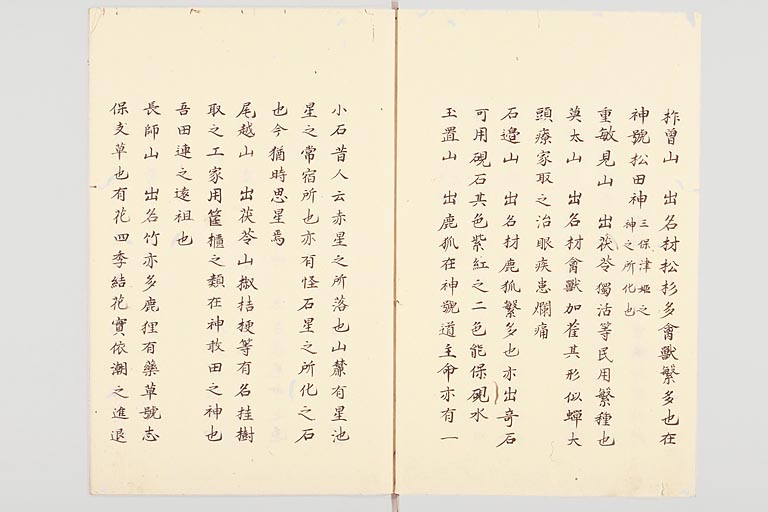 柞曽山　出名材松杉多禽獸繁多也在
神號松田神三保津姫之
神之所化也
重敏見山　出茯苓獨活等民用繁種也
英太山　出名材禽獸加雈其形似蟬大
頭療家取之治眼疾患爛痛
石邉山　出名材鹿狐繁多也亦出奇石
可用硯石其色紫紅之二色能保硯水
玉置山　出鹿狐在神號道主命亦有一
小石昔人云赤星之所落也山麓有星池
星之常宿所也亦有怪石星之所化之石
也今猶時思星焉
尾越山　出茯苓山椒桔梗等有名挂樹
取之工家用筐櫃之類在神敢田之神也
吾田連之遠祖也
長師山　出名竹亦多鹿狸有藥草號志
保支草也有花四季結花實依潮之進退